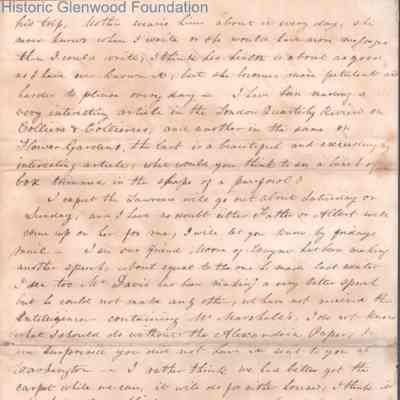 Historic Glenwood Foundation
his trip, Mother wearies him about it every day, she
never knows when I write or she would have more messages
than I could write, I think her health is about as good
as I have ever known it, but she becomes more petulant and
harder to please every day — I have been reading a
very interesting article in the London Quarterly Review on
Colliers & Collieries, and another in the same on
Flower Gardens, the last is a beautiful and exceedingly
interesting article, what would you think to see a hedge of
box trimmed in the shape of a
I expect the Lawrens will go out about Saturday or
Sunday, and I have no doubt either Father or Albert will
come up or for me, I will let you know by fridays
mail — I see our friend Moore of has been making
another speech, about equal to the one he made last winter
I see too Mr Davis has been making a very better speech
but he could not make any other, we have not received the
Intelligencer containing Mr Marshall's, I do not know
what I should do without the Alexandria Paper, I
you did not have it sent to you at
Washington — I rather think we had better get the
carpet while we can, it will do for other houses, I think it